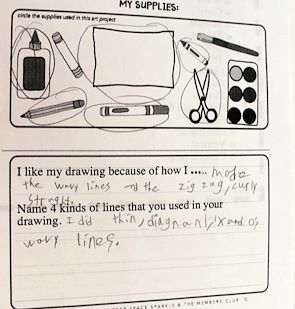 MY SUPPLIES:
circle the supplies used in this art project
I like my drawing because of how I ..... made
the wavy lines and the zig zag, curly
Name 4 kinds of lines that you used in your
drawing. I did thin,
wavy lines.
SPACE SPARKLE & THE MEMBERS CLUB